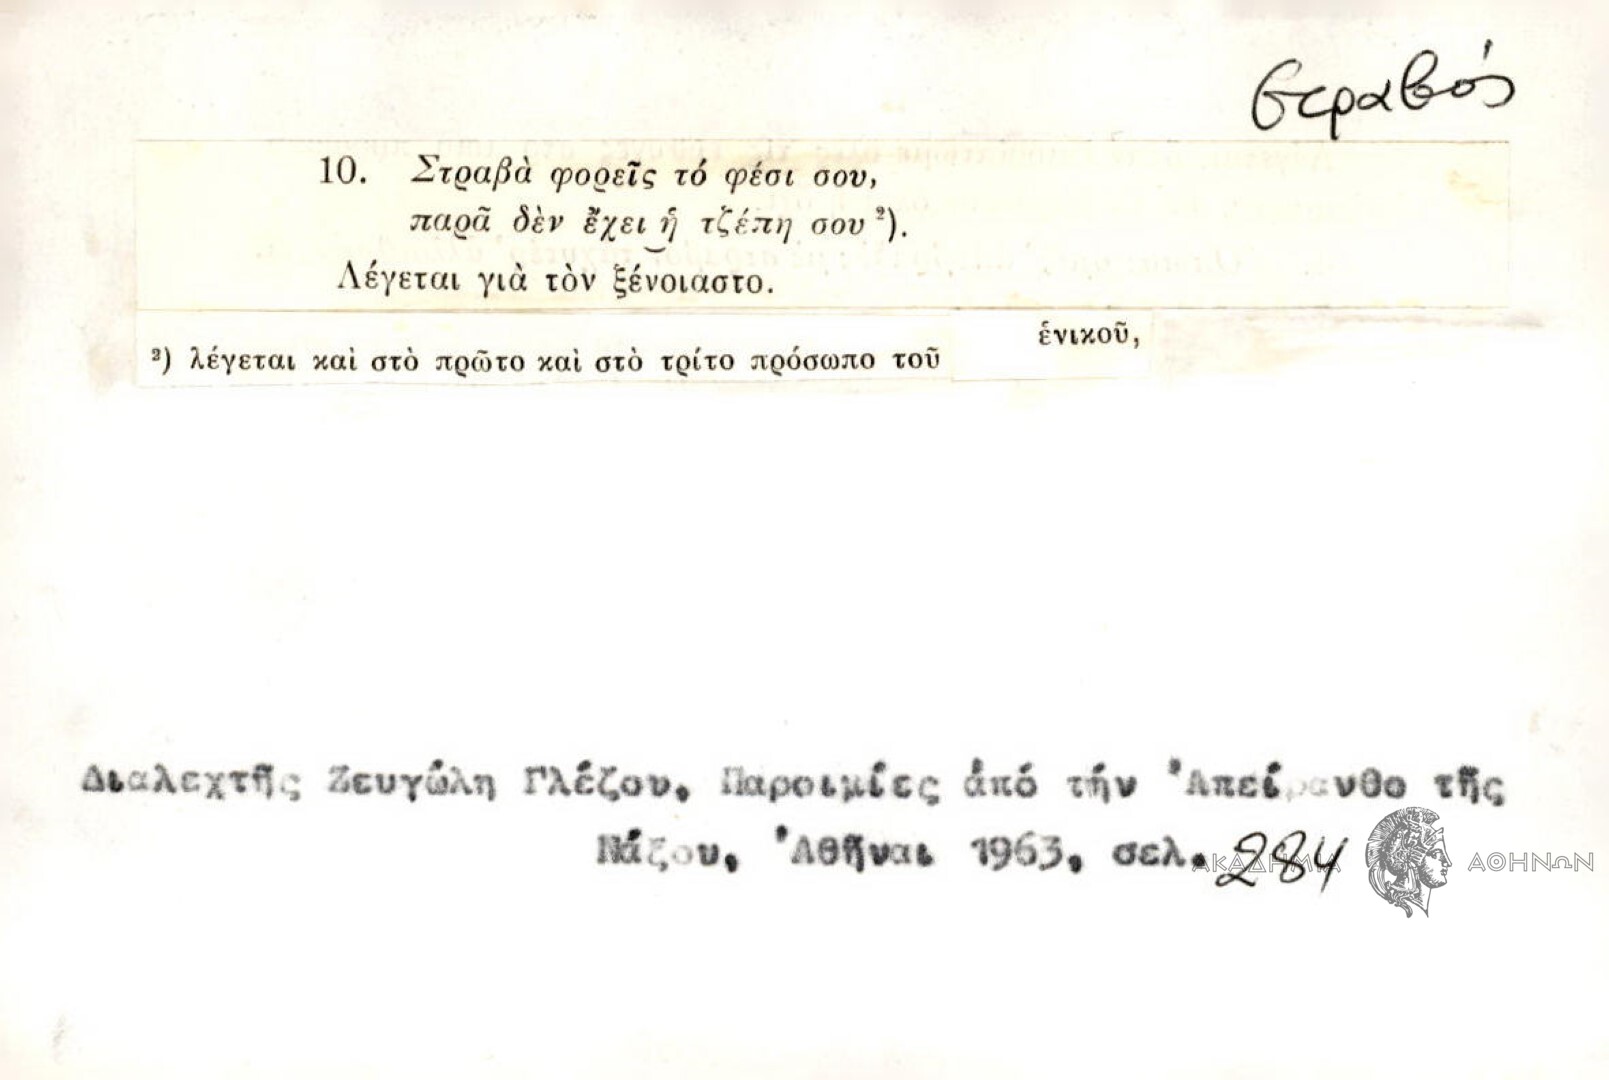 στραβός
10. Στραβὰ φορεῖς τό φέσι σου,
παρᾶ δὲν ἔχει‿ἡ τζέπη σου ²).
Λέγεται γιὰ τὸν ξένοιαστο.
²) λέγεται καὶ στὸ πρῶτο καὶ στὸ τρίτο πρόσωπο τοῦ ἑνικοῦ,
Διαλεχτῆς Ζευγώλη Γλέζου. Παροιμίες ἀπό τήν Ἀπείρανθο τῆς
Νάξου, Ἀθῆναι 1963, σελ. 284
ΑΚΑΔΗΜΙΑ ΑΘΗΝΩΝ